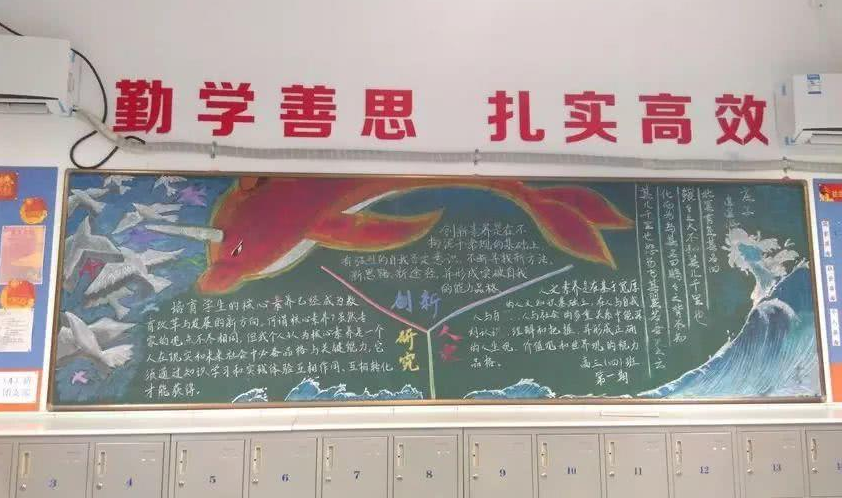 勤学善思 扎实高效
创新素养是在不
拘泥于常规的基础上
有强烈的自我否定意识,不断寻找新方法、
新思路、新途径,并形成突破自我
的能力品格
创新
研究
人文
培育学生的核心素养已经成为教
育改革与发展的新方向。何谓核心素养?
家的观点不尽相同,但我个人认为核心素养是一个
人在现实和未来社会中必备品格与关键能力,它
须通过知识学习和实践体验互相作用、互相转化
才能获得。
人文素养是在基于宽厚
的人文知识基础上,在人与自我
人与自 、人与社会的多重关系中能深
刻认识、理解和把握,并形成正确
的人生观、价值观和世界观的能力
品格。
高三(四)班
第一期
逍遥游
北冥有鱼其名曰
鲲鲲之大不知其几千里也
化而为鸟其名曰鹏鹏之背不知
其几千里也怒而飞其翼若垂天之云
3
4
5
6
7
8
9
10
11
12
13